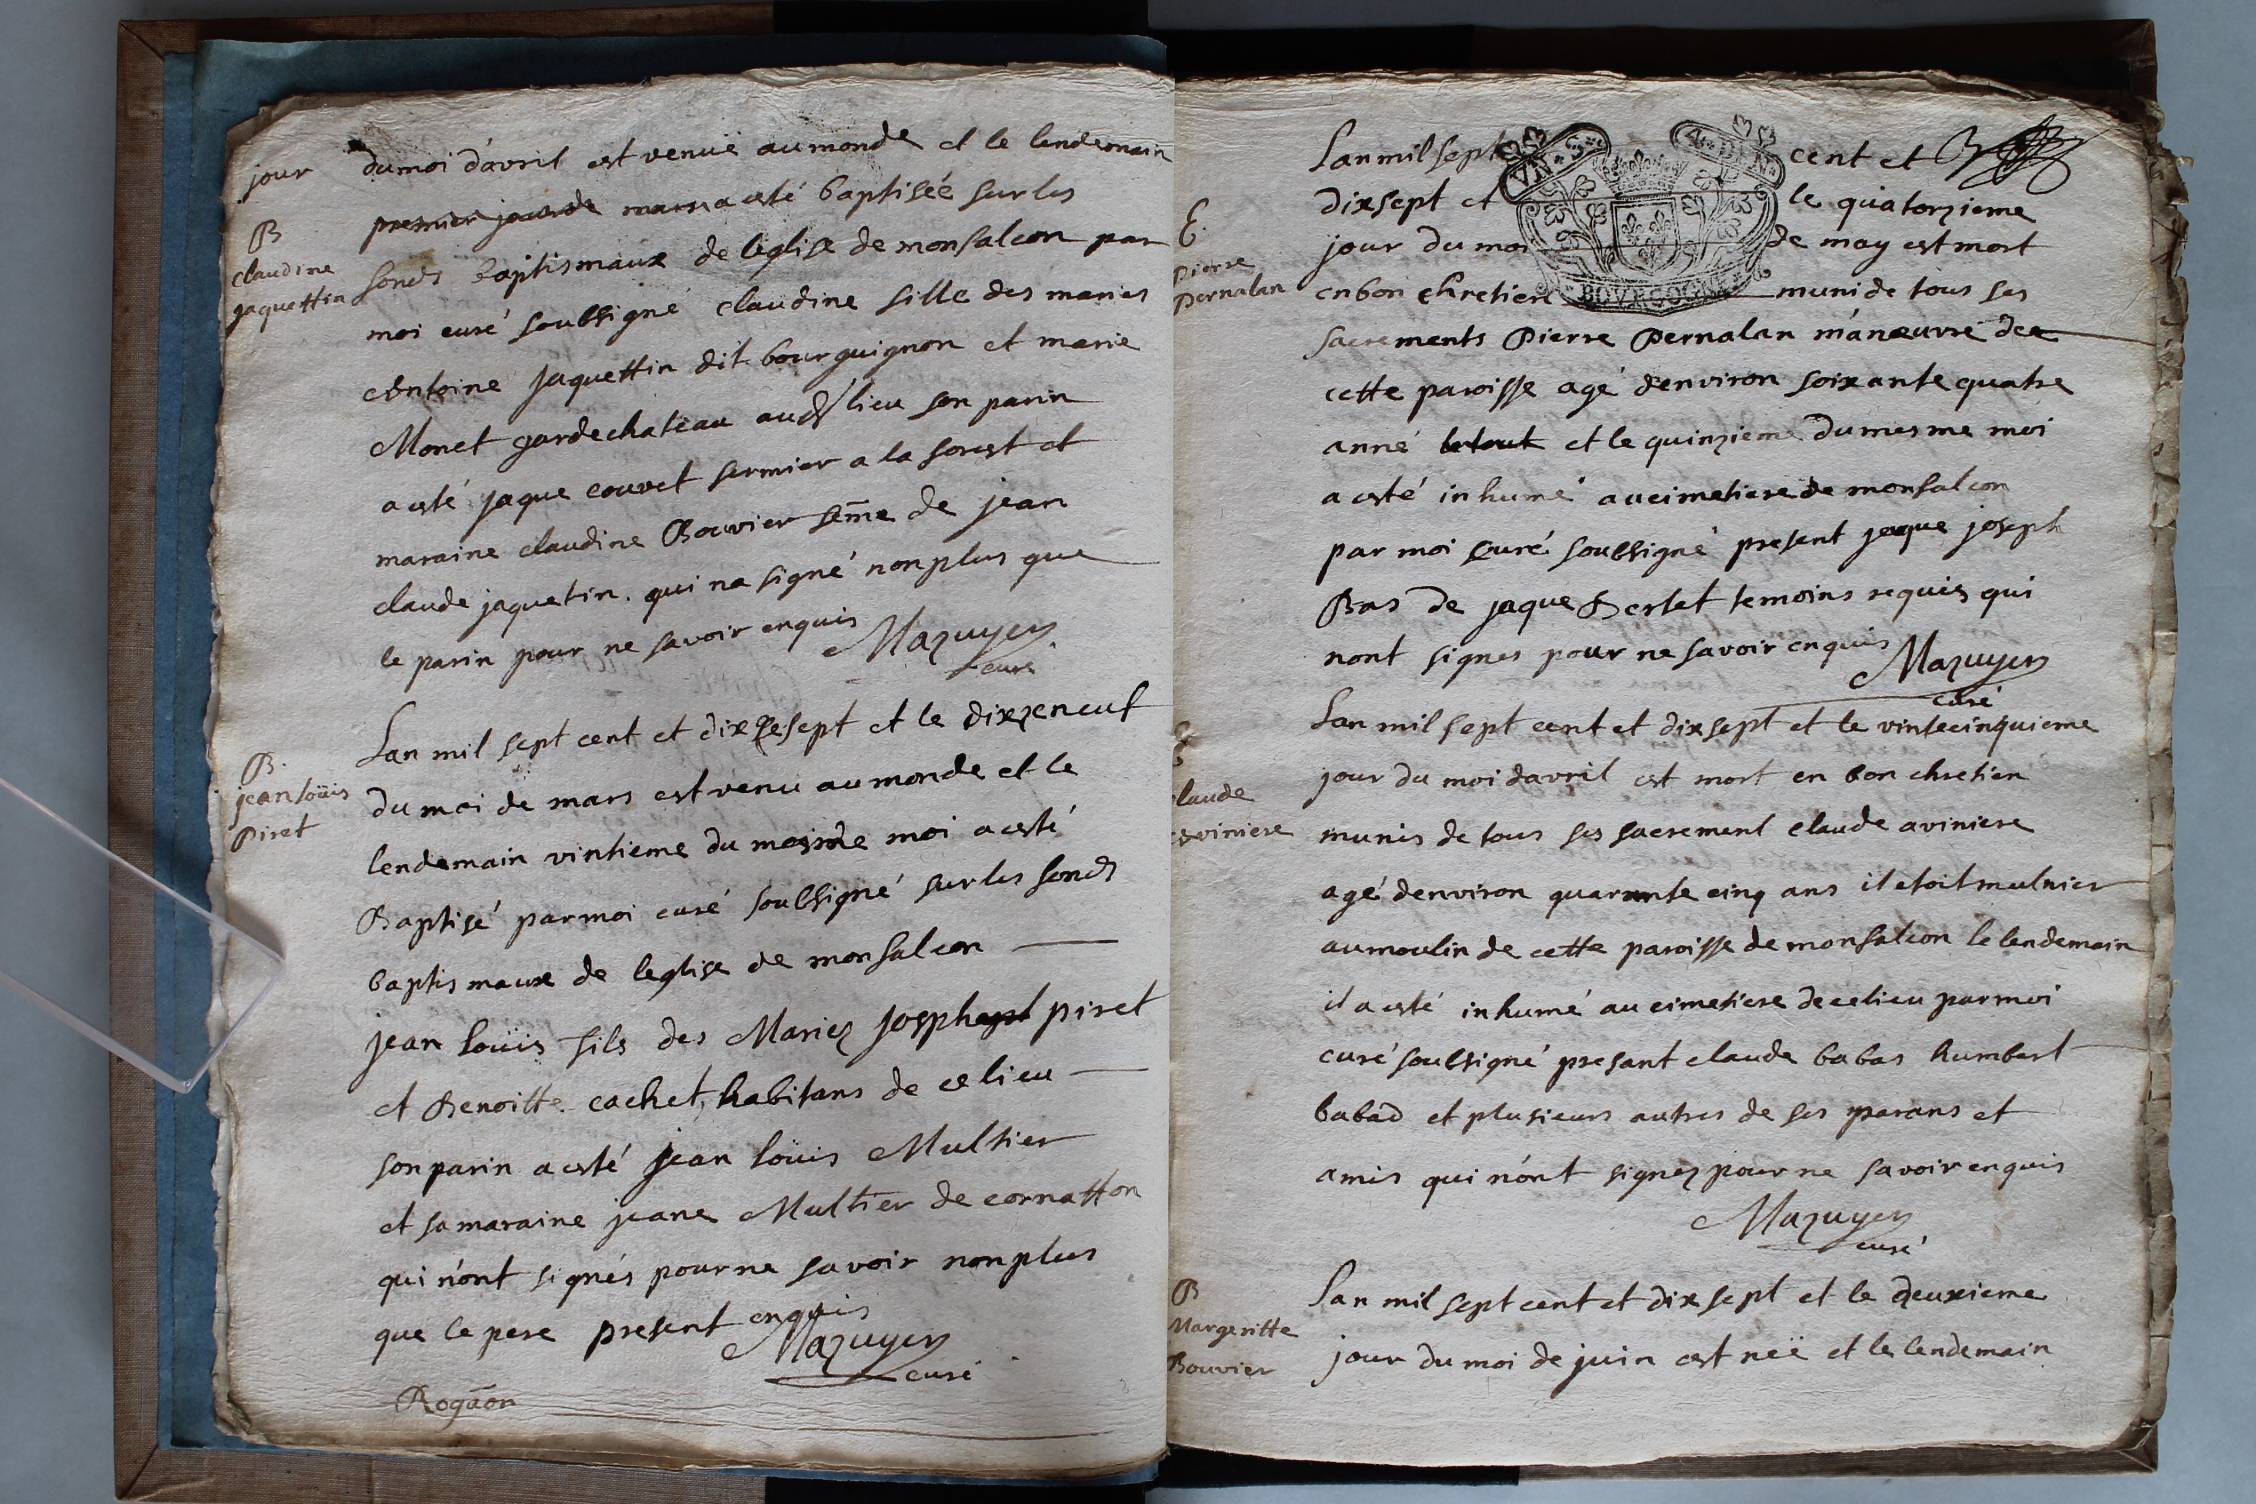 jour du moi d'avril est venuë au monde et le lendemain
B
claudine
jaquettin
premier jour de mars a esté baptisée sur les
fonds baptismaux de leglise de monfalcon par
moi curé soubsigné claudine fille des mariés
Antoine jaquettin dit bourguignon et marie
Monet garde chateau aud lieu son parin
a esté jaque couvet fermier a la forest et
maraine claudine Bouvier feme de jean
claude jaquetin. qui na signé non plus que
le parin pour ne savoir enquis Mazuyer
curé
B.
jean loüis
Piret
Lan mil sept cent et dixsept et le dixzeneuf
du moi de mars est venu au monde et le
lendemain vintieme du mesme moi a esté
Baptisé par moi curé soubsigné sur les fonds
baptismaux de leglise de monfalcon
jean loüis fils des Mariez joseph piret
et Benoitte cachet, habitans de ce lieu
son parin a esté jean loüis Multier
et sa maraine jeane Multier de cornatton
qui n'ont signés pour ne savoir non plus
que le pere present enquis
Mazuyer
curé
Rogāon
Lan mil sept cent et
VN S. 4. DEN.
BOVRGOGNE
E.
Pierre
Pernalan
dixsept et le quatorzieme
jour du moi de may est mort
en bon chretien muni de tous ses
sacrements Pierre Pernalan manœuvre de
cette paroisse agé denviron soixante quatre
anné et le quinzieme du mesme moi
a esté inhumé au cimetiere de monfalcon
par moi curé soubsigné present jaque joseph
Bas de jaque Bertet temoins requis qui
nont signes pour ne savoir enquis Mazuyer
curé
laude
aviniere
Lan mil sept cent et dixsept et le vintecinquieme
jour du moi davril est mort en bon chretien
munis de tous ses sacrement claude aviniere
agé denviron quarante cinq ans il etoit mulnier
au moulin de cette paroisse de monfalcon le lendemain
il a esté inhumé au cimetiere de ce lieu par moi
curé soubsigné presant claude babas humbert
babad et plusieurs autres de ses parans et
amis qui n'ont signez pour ne savoir enquis
Mazuyer
curé
B
Margeritte
Bouvier
Lan mil sept cent et dix sept et le deuxieme
jour du moi de juin est néë et le lendemain